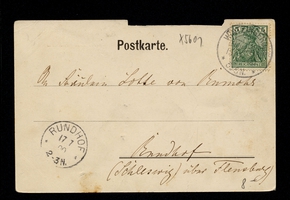 Postkarte.
X5609
An Fräulein Lotte von
RUNDHOF
17 1
2-3N.
Rundhof
(Schleswig) über Flensburg